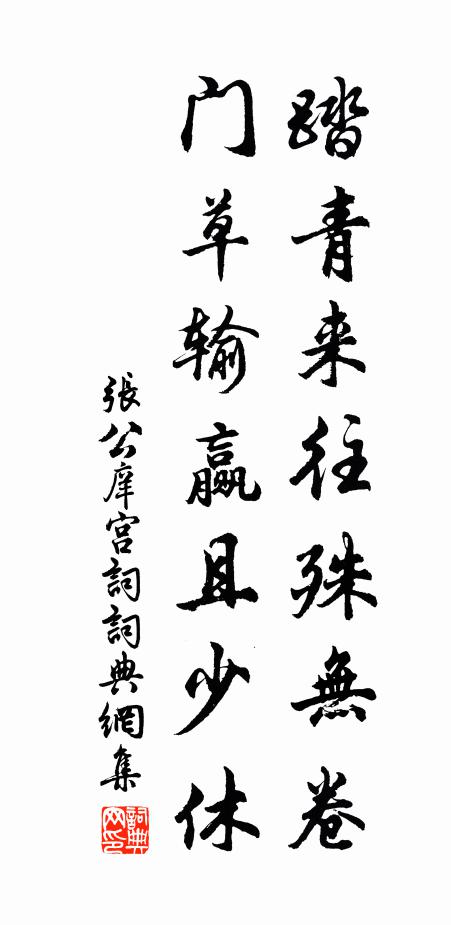 踏青来往殊無卷
门草输赢且少休
張公庠宫詞詞典網集
詞典网印